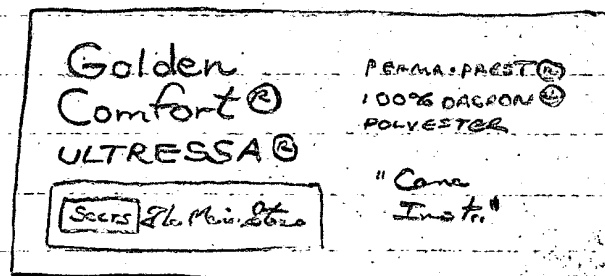 Golden
Comfort ®
ULTRESSA ®
Sears The Men's Store
PERMA-PREST ®
100% DACRON ®
POLYESTER
"Care
Inst."